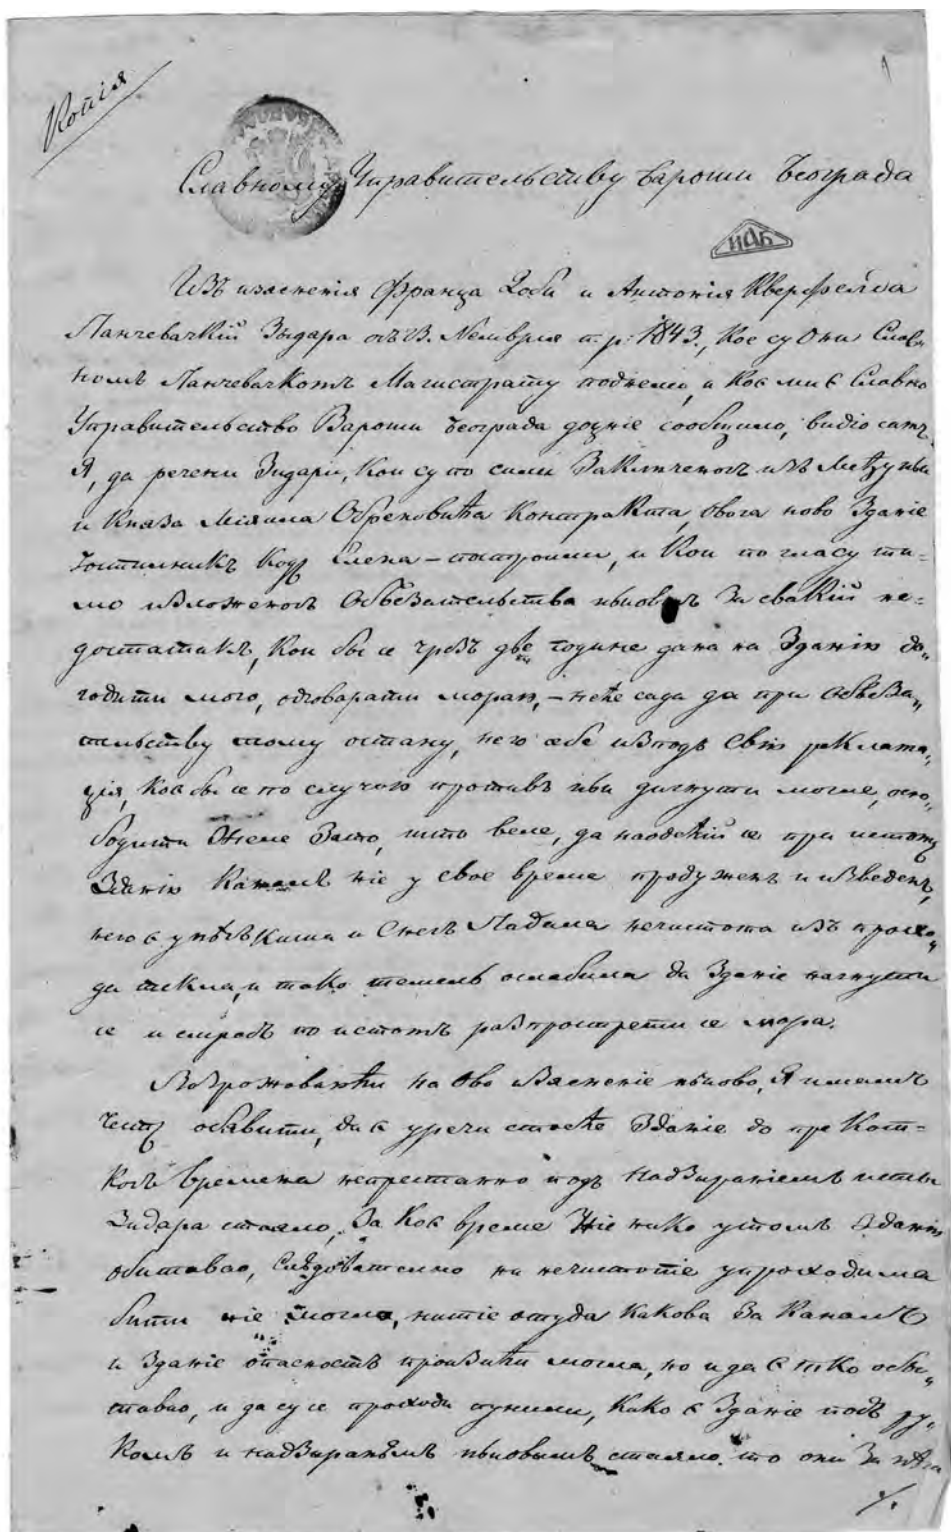 Копія
Славному Управительству Вароши Београда
ИАБ
Изъ изясненія Франца Доби и Антонія Кверфелда
Панчевачкій Зидара отъ 13. Новембрія т. р. 1843., Кое су Они Слав-
номъ Панчевачкомъ Магистрату поднели, и Кое ми є Славно
Управительство Вароши Београда доцніе сообщило, видіо самъ
Я, да речени Зидари, Кои су по сили Заключеногъ изъ Међу ньи
и Княза Міаила Обреновића Контракта, овога ново Зданіе
Гостилникъ Кодъ Єлена – построили, и Кои по гласу ти-
мо изложеногъ Обвезателства ньиовогъ За свакій не-
достатакъ, Кои бы се чрезъ две године дана на Зданію до-
годити мого, одговарати мораю, – неће сада да при Обвеза-
телству тому остану, него себе изподъ свію реклама-
ція, Кое бы се по случаю противъ ньи дигнути могле, осло-
бодити Желе Зато, што веле, да наодећій се при истомъ
Зданію Каналъ ніе у свое време продуженъ и изведенъ,
него є усљѣдъ Киша и Снега Падала нечистота изъ прохо-
да текла, и тако темель ослабила да Зданіе нагнути
се и смрадъ по истомъ распрострети се мора.
Возражаваюћи на Ово изясненіе ньиово, Я имамъ
честь обявити, да є у речи стоеће Зданіе до пре Кот-
когъ времена непрестанно подъ Надзираніемъ исты
Зидара стаяло, За Кое време Ніе нико у томъ Зданію
обитавао, слѣдователно ни нечистоте у проходима
быти ніе могло, нити є отуда Какова За Каналъ
и Зданіе опасность произићи могла, но и да є тко оби-
тавао, и да су се проходи пунили, Како є Зданіе подъ ру-
комъ и надзираньмъ ньиовымъ стаяло, то они За нѣга
·/.